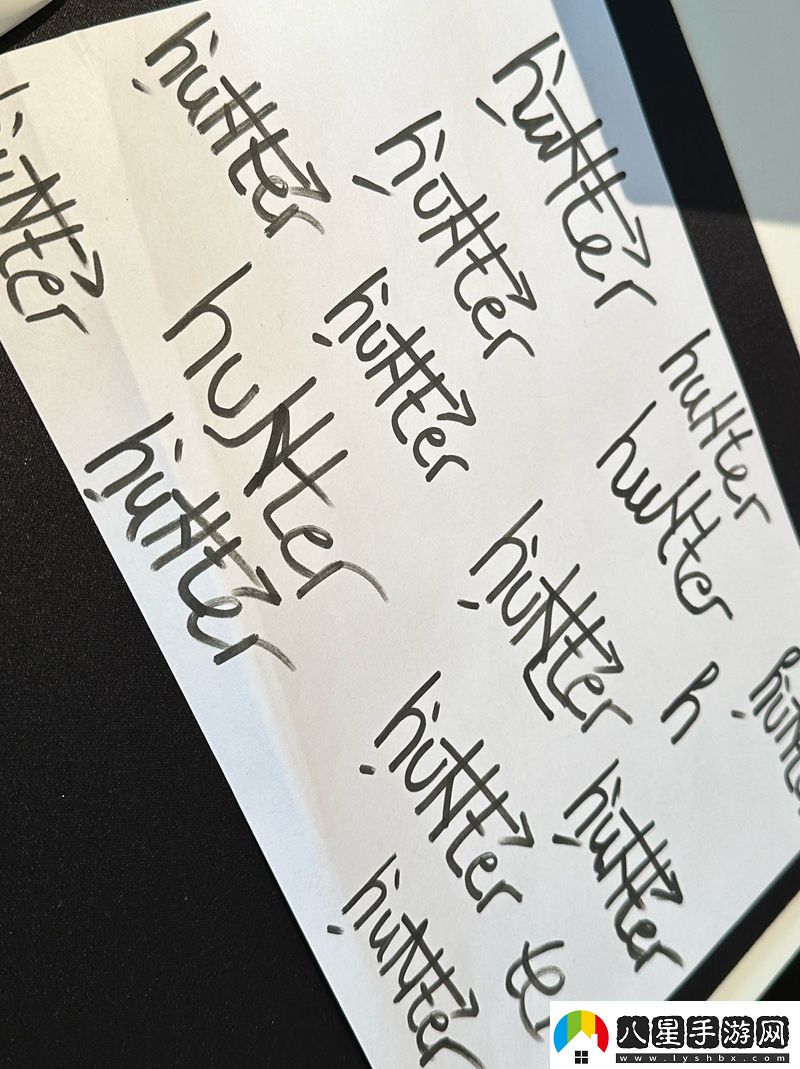 hunter
hunter
hunter
hunter
hunter
hunter
hunter
hunter
hunter
hunter
hunter
h
hunter
hunter
hunter
te
八星手游网
www.lyshbx.com